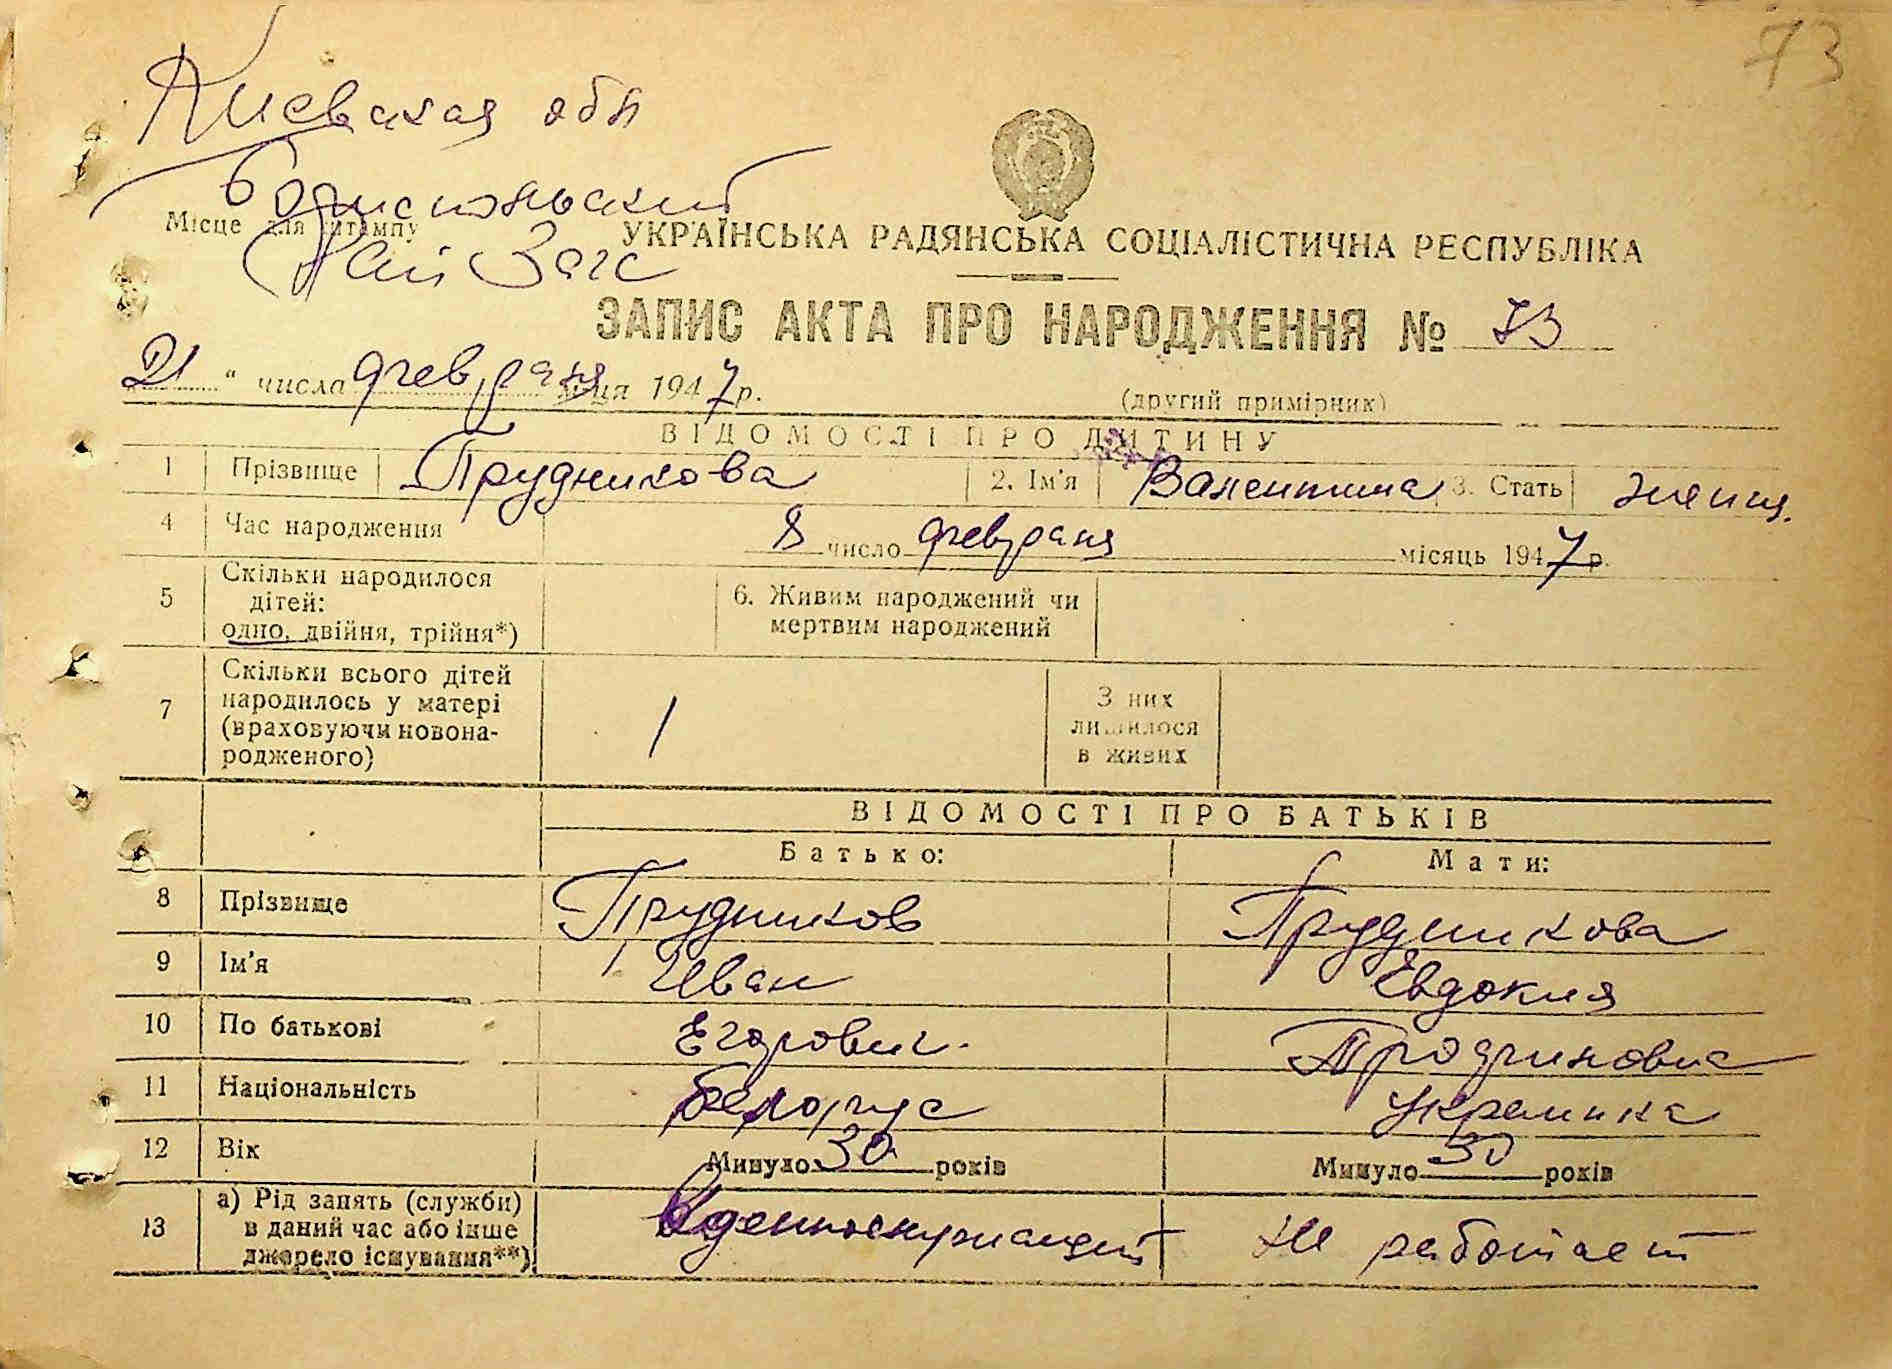 73
Киевская обл
Бориспольский
Місце для штампу
Рай Загс
УКРАЇНСЬКА РАДЯНСЬКА СОЦІАЛІСТИЧНА РЕСПУБЛІКА
ЗАПИС АКТА ПРО НАРОДЖЕННЯ № 73
21 " числа февраля м-ця 1947 р.
(другий примірник)
ВІДОМОСТІ ПРО ДИТИНУ
1 Прізвище Прудникова 2. Ім'я Валентина 3. Стать женщ.
4 Час народження 8 число февраля місяць 1947 р.
5 Скільки народилося дітей: одно, двійня, трійня*) 6. Живим народжений чи мертвим народжений
7 Скільки всього дітей народилось у матері (враховуючи новонародженого) 1 З них лишилося в живих
ВІДОМОСТІ ПРО БАТЬКІВ
Батько: Мати:
8 Прізвище Прудников Прудникова
9 Ім'я Иван Евдокия
10 По батькові Егорович. Трофимовна
11 Національність белорус украинка
12 Вік Минуло 30 років Минуло 30 років
13 а) Рід занять (служби) в даний час або інше джерело існування**) Не работает